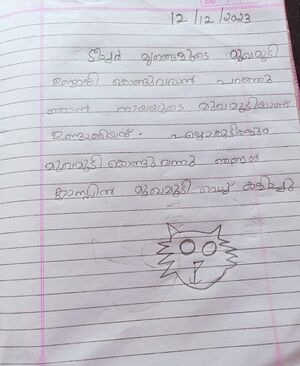 12/12/2023
ടീച്ചർ മൃഗങ്ങളുടെ മുഖംമൂടി
ഉണ്ടാക്കി കൊണ്ടുവരാൻ പറഞ്ഞു
ഞാൻ നായയുടെ മുഖംമൂടിയാണ്
ഉണ്ടാക്കിയത്. എല്ലാകുട്ടികളും
മുഖംമൂടി കൊണ്ടു വന്നു ഞങ്ങൾ
ക്ലാസ്സിൽ മുഖംമൂടി വെച്ച് കളിച്ചു